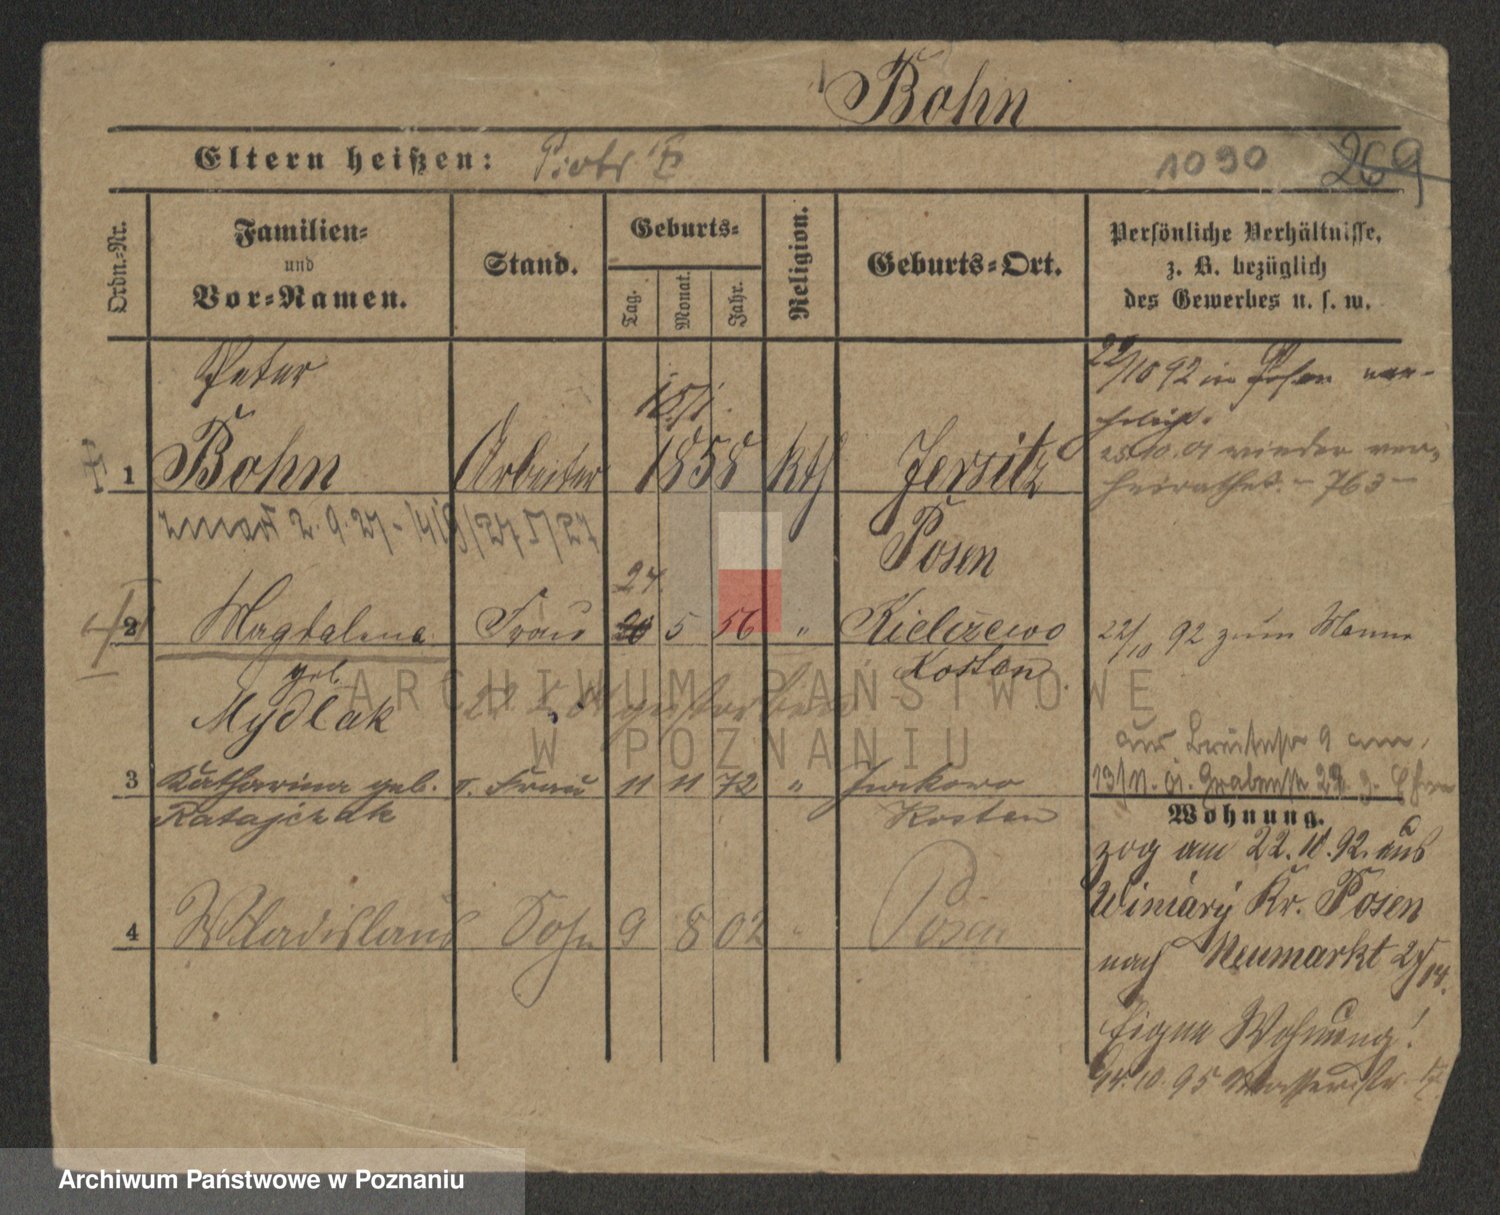 Bohn
Eltern heißen: Piotr 1090 269
Ordn.-Nr.
Familien-
und
Vor-Namen.
Stand.
Geburts-
Tag.
Monat.
Jahr.
Religion.
Geburts-Ort.
Persönliche Verhältnisse,
z. B. bezüglich
des Gewerbes u. s. w.
Peter
1 Bohn Arbeiter 1858 kth Jersitz
Posen
22/10 92 in Posen ver-
25/10.01 wieder ver-
heirathet. - 763 -
zmarł 2.9.27 -
24.
2 Magdalena Frau 5 56 " Kielczewo
Kosten
22/10 92 zum Manne
geb.
Mydlak
3 Katharina geb. II. Frau 11 11 72 "
Ratajczak Kosten
4 Wladislaus Sohn 9 8 02 " Posen
Wohnung.
zog am 22.10.92. aus
Winiary Kr. Posen
nach Neumarkt
Eigene Wohnung!
10.95 Wasserstr.
ARCHIWUM PAŃSTWOWE
W POZNANIU
Archiwum Państwowe w Poznaniu